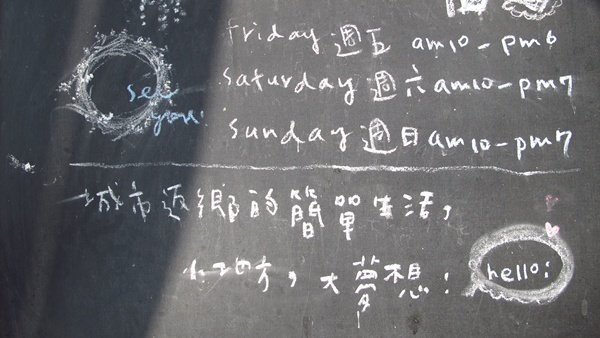 friday 週五 am10-pm6
saturday 週六 am10-pm7
see
you!
sunday 週日 am10-pm7
城市返鄉的簡單生活,
小地方,大夢想!
hello!